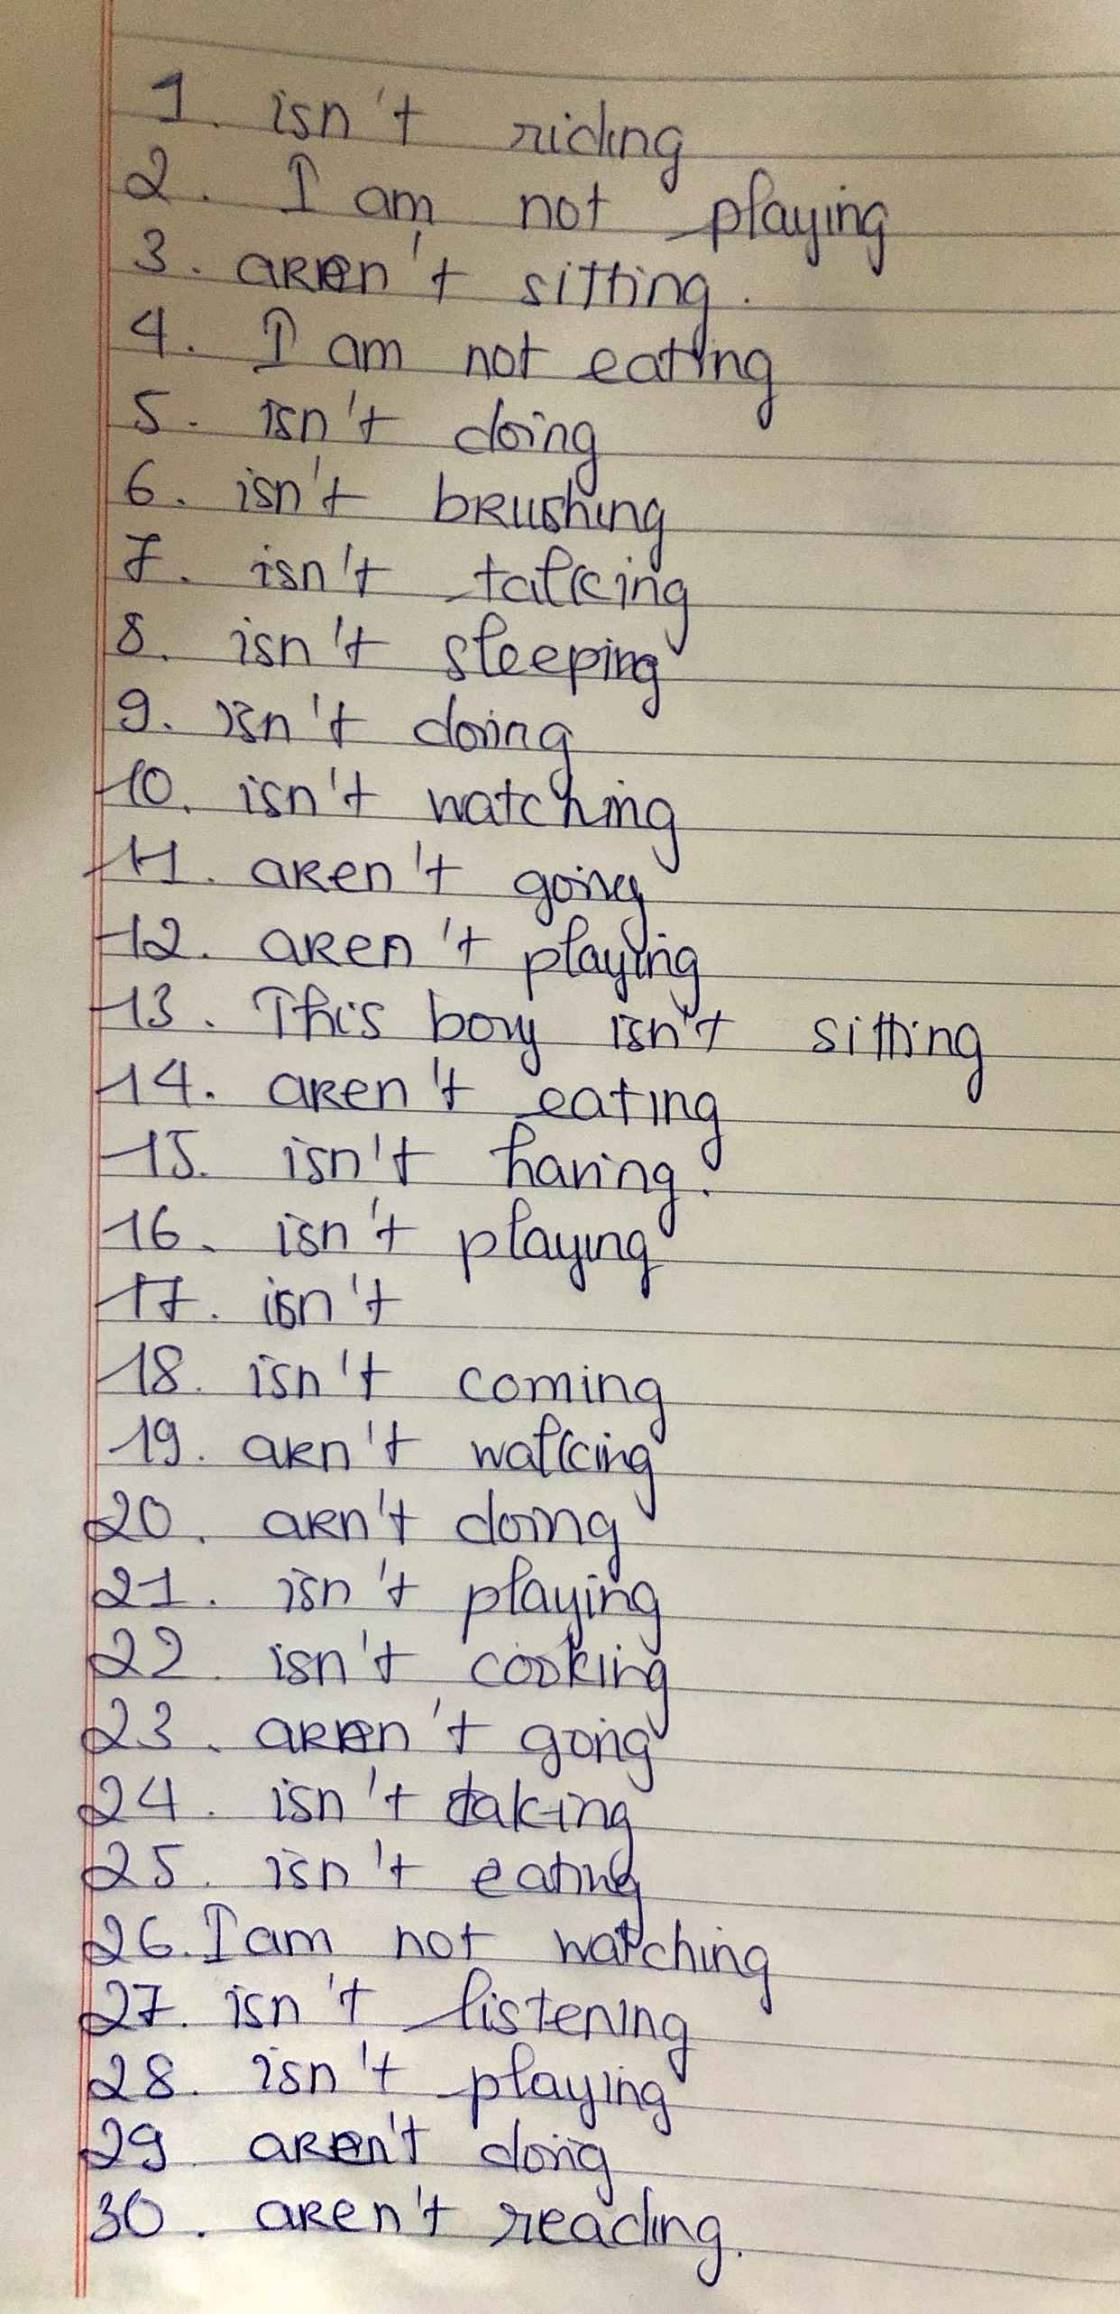 1. isn't riding
2. I am not playing
3. aren't sitting.
4. I am not eating
5. isn't doing
6. isn't brushing
7. isn't talking
8. isn't sleeping
9. isn't doing
10. isn't watching
11. aren't going
12. aren't playing
13. This boy isn't sitting
14. aren't eating
15. isn't having.
16. isn't playing
17. isn't
18. isn't coming
19. arn't walking
20. arn't doing
21. isn't playing
22. isn't cooking
23. aren't going
24. isn't taking
25. isn't eating
26. I am not watching
27. isn't listening
28. isn't playing
29. aren't doing
30. aren't reading.